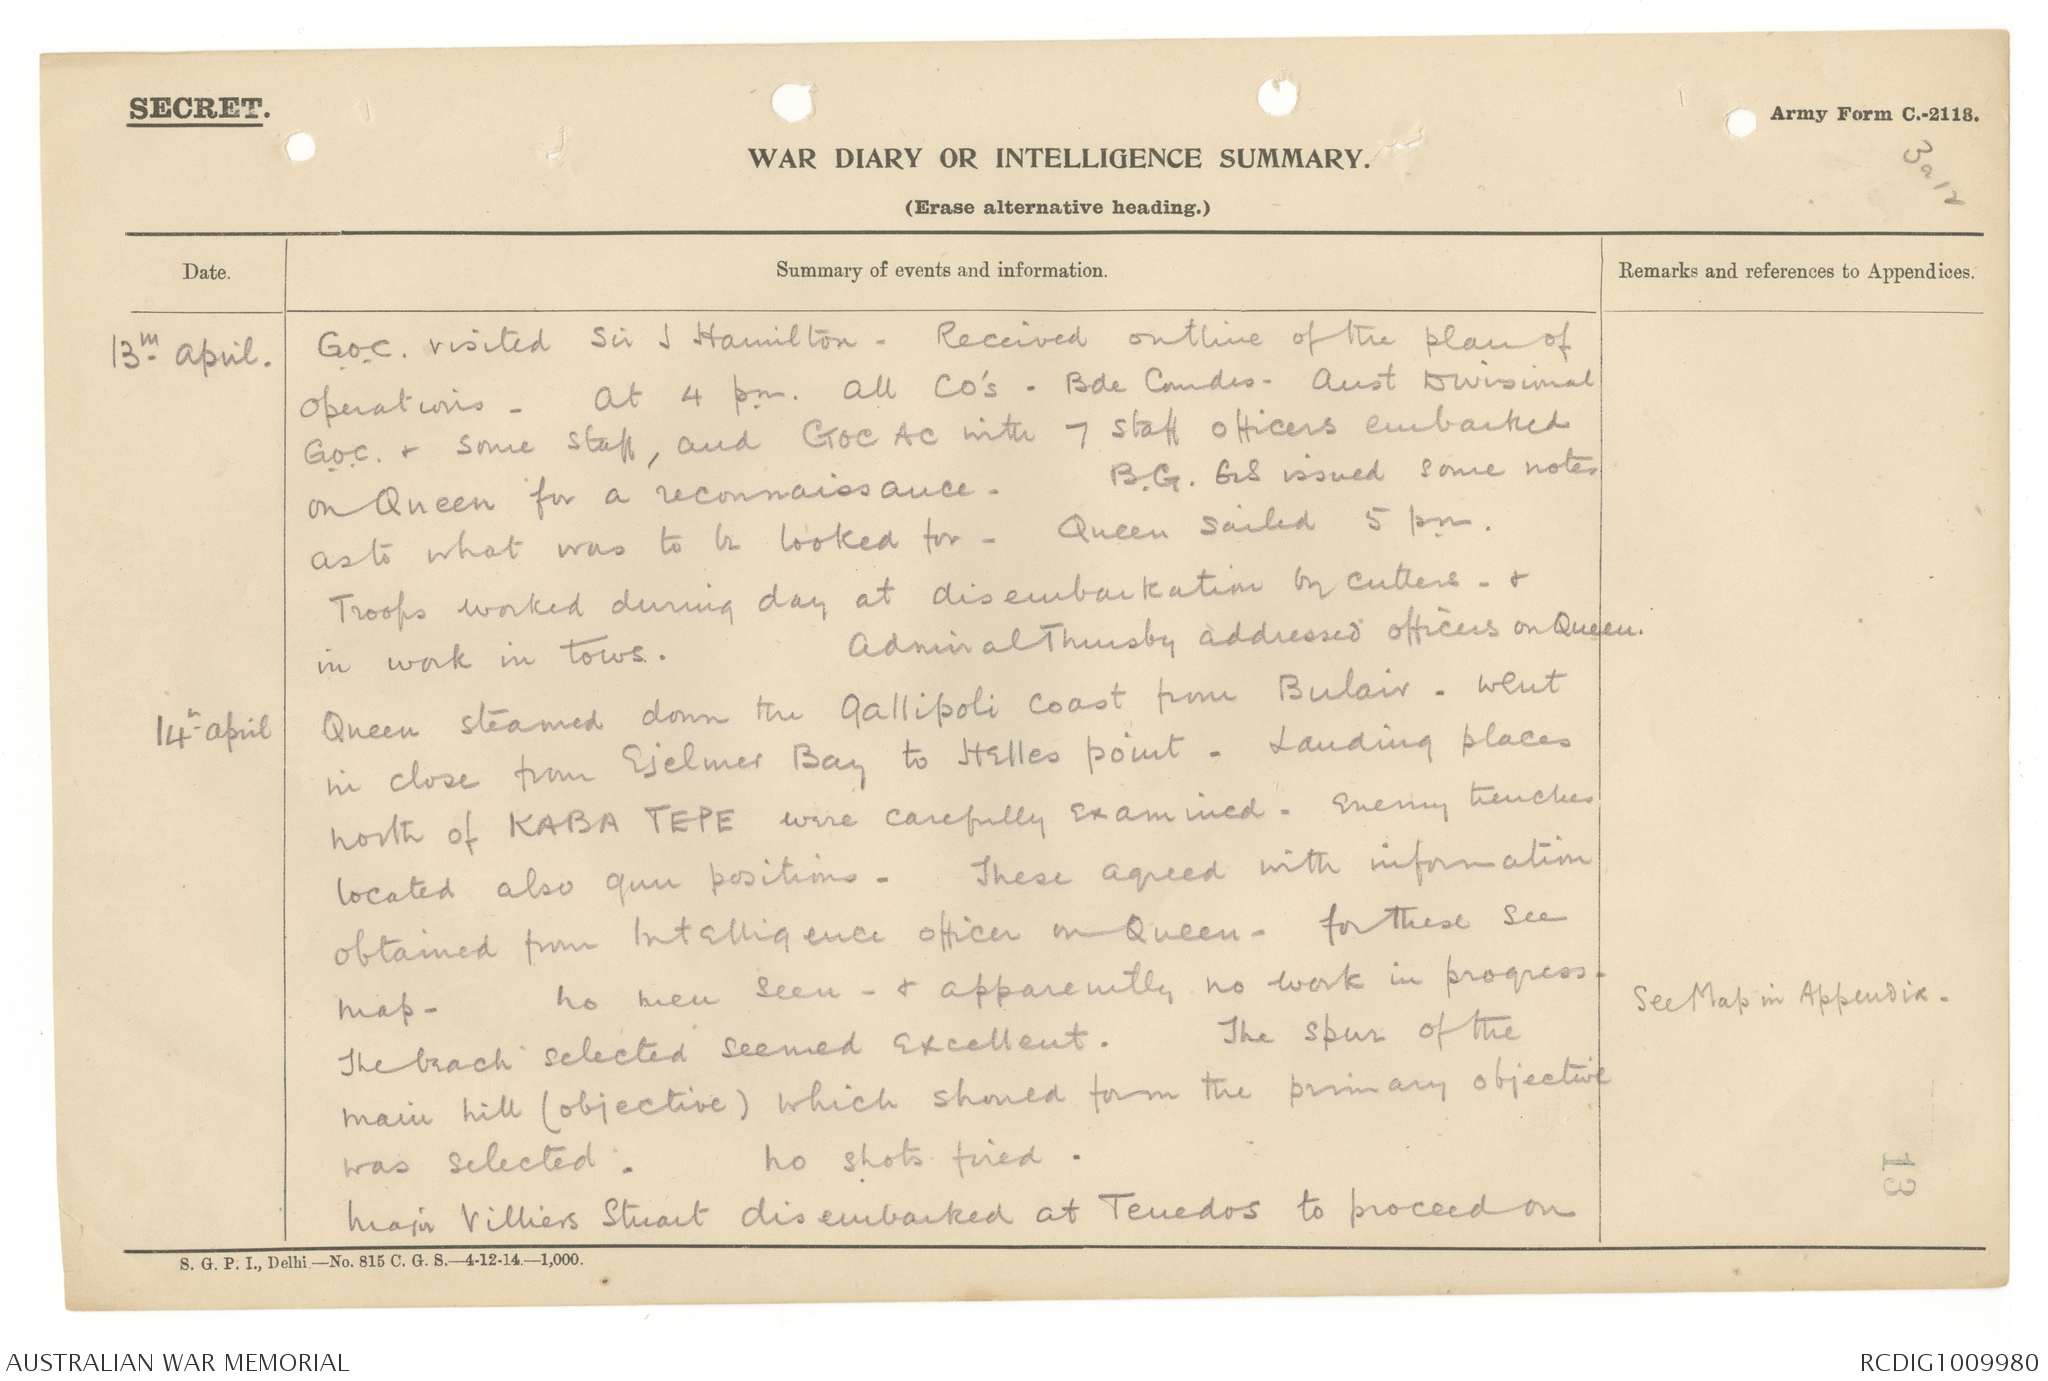 SECRET.
Army Form C.-2118.
WAR DIARY OR INTELLIGENCE SUMMARY.
(Erase alternative heading.)
Date.
Summary of events and information.
Remarks and references to Appendices.
13th April.
G.O.C. visited Sir I Hamilton - Received outline of the plan of
operations - At 4 pm. all CO's - Bde Comdes - Aust Divisional
G.O.C. & some staff, and GOC AC with 7 staff officers embarked
on Queen for a reconnaissance - B.G. GS issued some notes
as to what was to be looked for - Queen sailed 5 pm.
Troops worked during day at disembarkation by cutters - &
in work in tows. Admiral Thursby addressed officers on Queen.
14th April
Queen steamed down the Gallipoli Coast from Bulair - went
in close from Ejelmer Bay to Helles point - Landing places
north of KABA TEPE were carefully examined - Enemy trenches
located also gun positions - These agreed with information
obtained from Intelligence officer on Queen - for these see
map - No men seen - & apparently no work in progress -
See Map in Appendix -
The beach selected seemed excellent. The spur of the
main hill (objective) which should form the primary objective
was selected. No shots fired.
Major Villiers Stuart disembarked at Tenedos to proceed on
13
S. G. P. I., Delhi—No. 815 C. G. S.—4-12-14—1,000.
AUSTRALIAN WAR MEMORIAL
RCDIG1009980